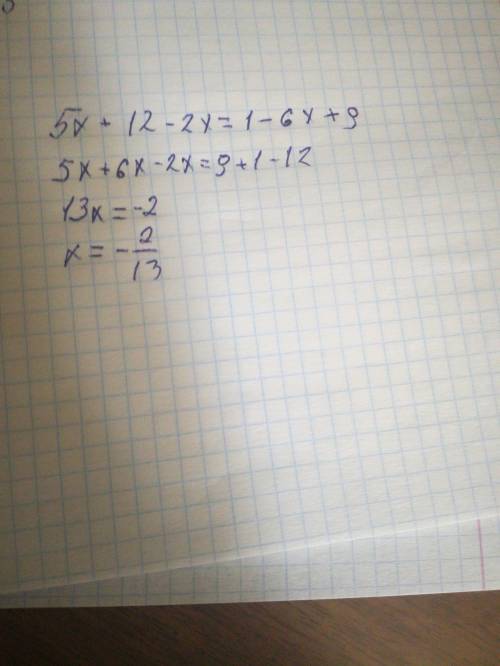 5x + 12 - 2x = 1 - 6x + 9
5x + 6x - 2x = 9 + 1 - 12
13x = -2
x = - 2/13